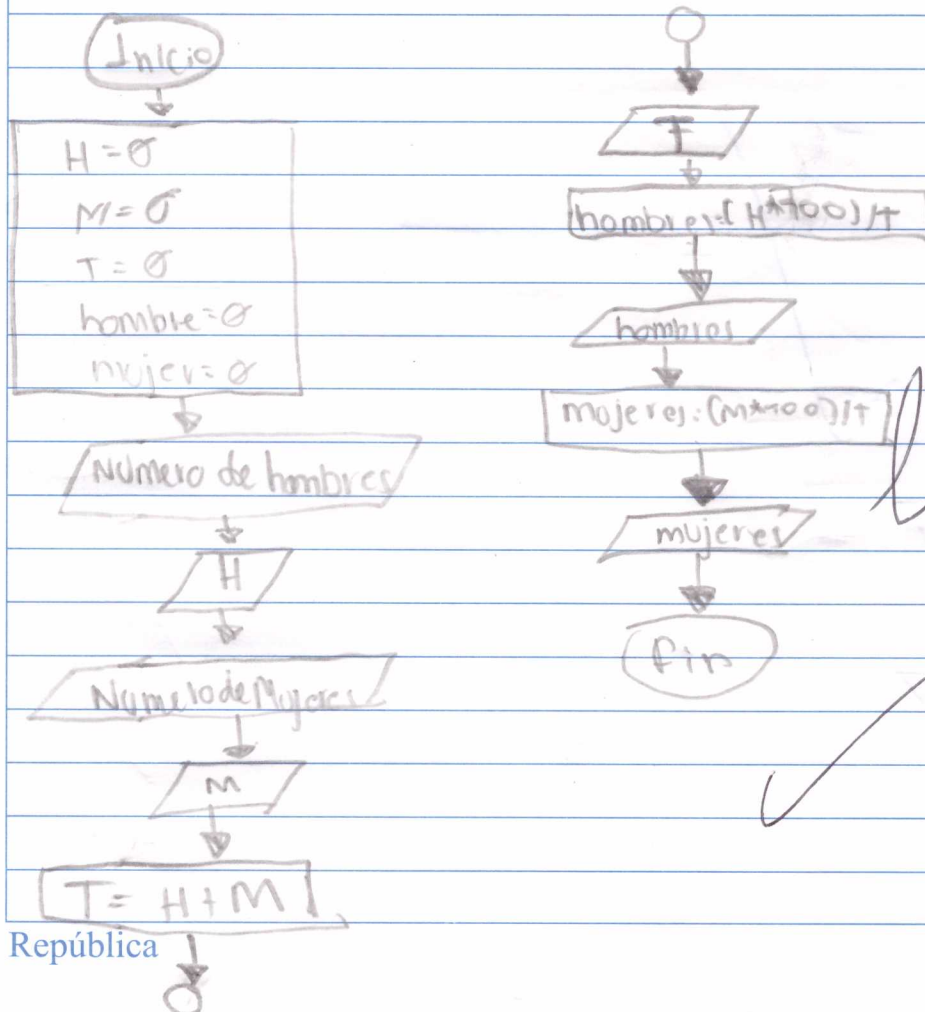 Inicio
H = 0
M = 0
T = 0
hombre = 0
mujer = 0
Numero de hombres
H
Numero de Mujeres
M
T = H + M
República
T
hombres=(H*100)/t
hombres
mujeres=(M*100)/t
mujeres
fin